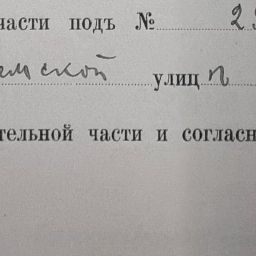 части подъ № 2
мской улиц ѣ
тельной части и согласн